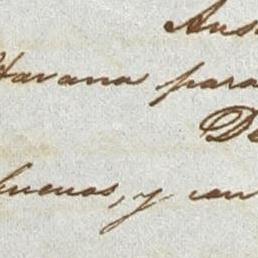 Aus
Havana para
De
buenas, y con